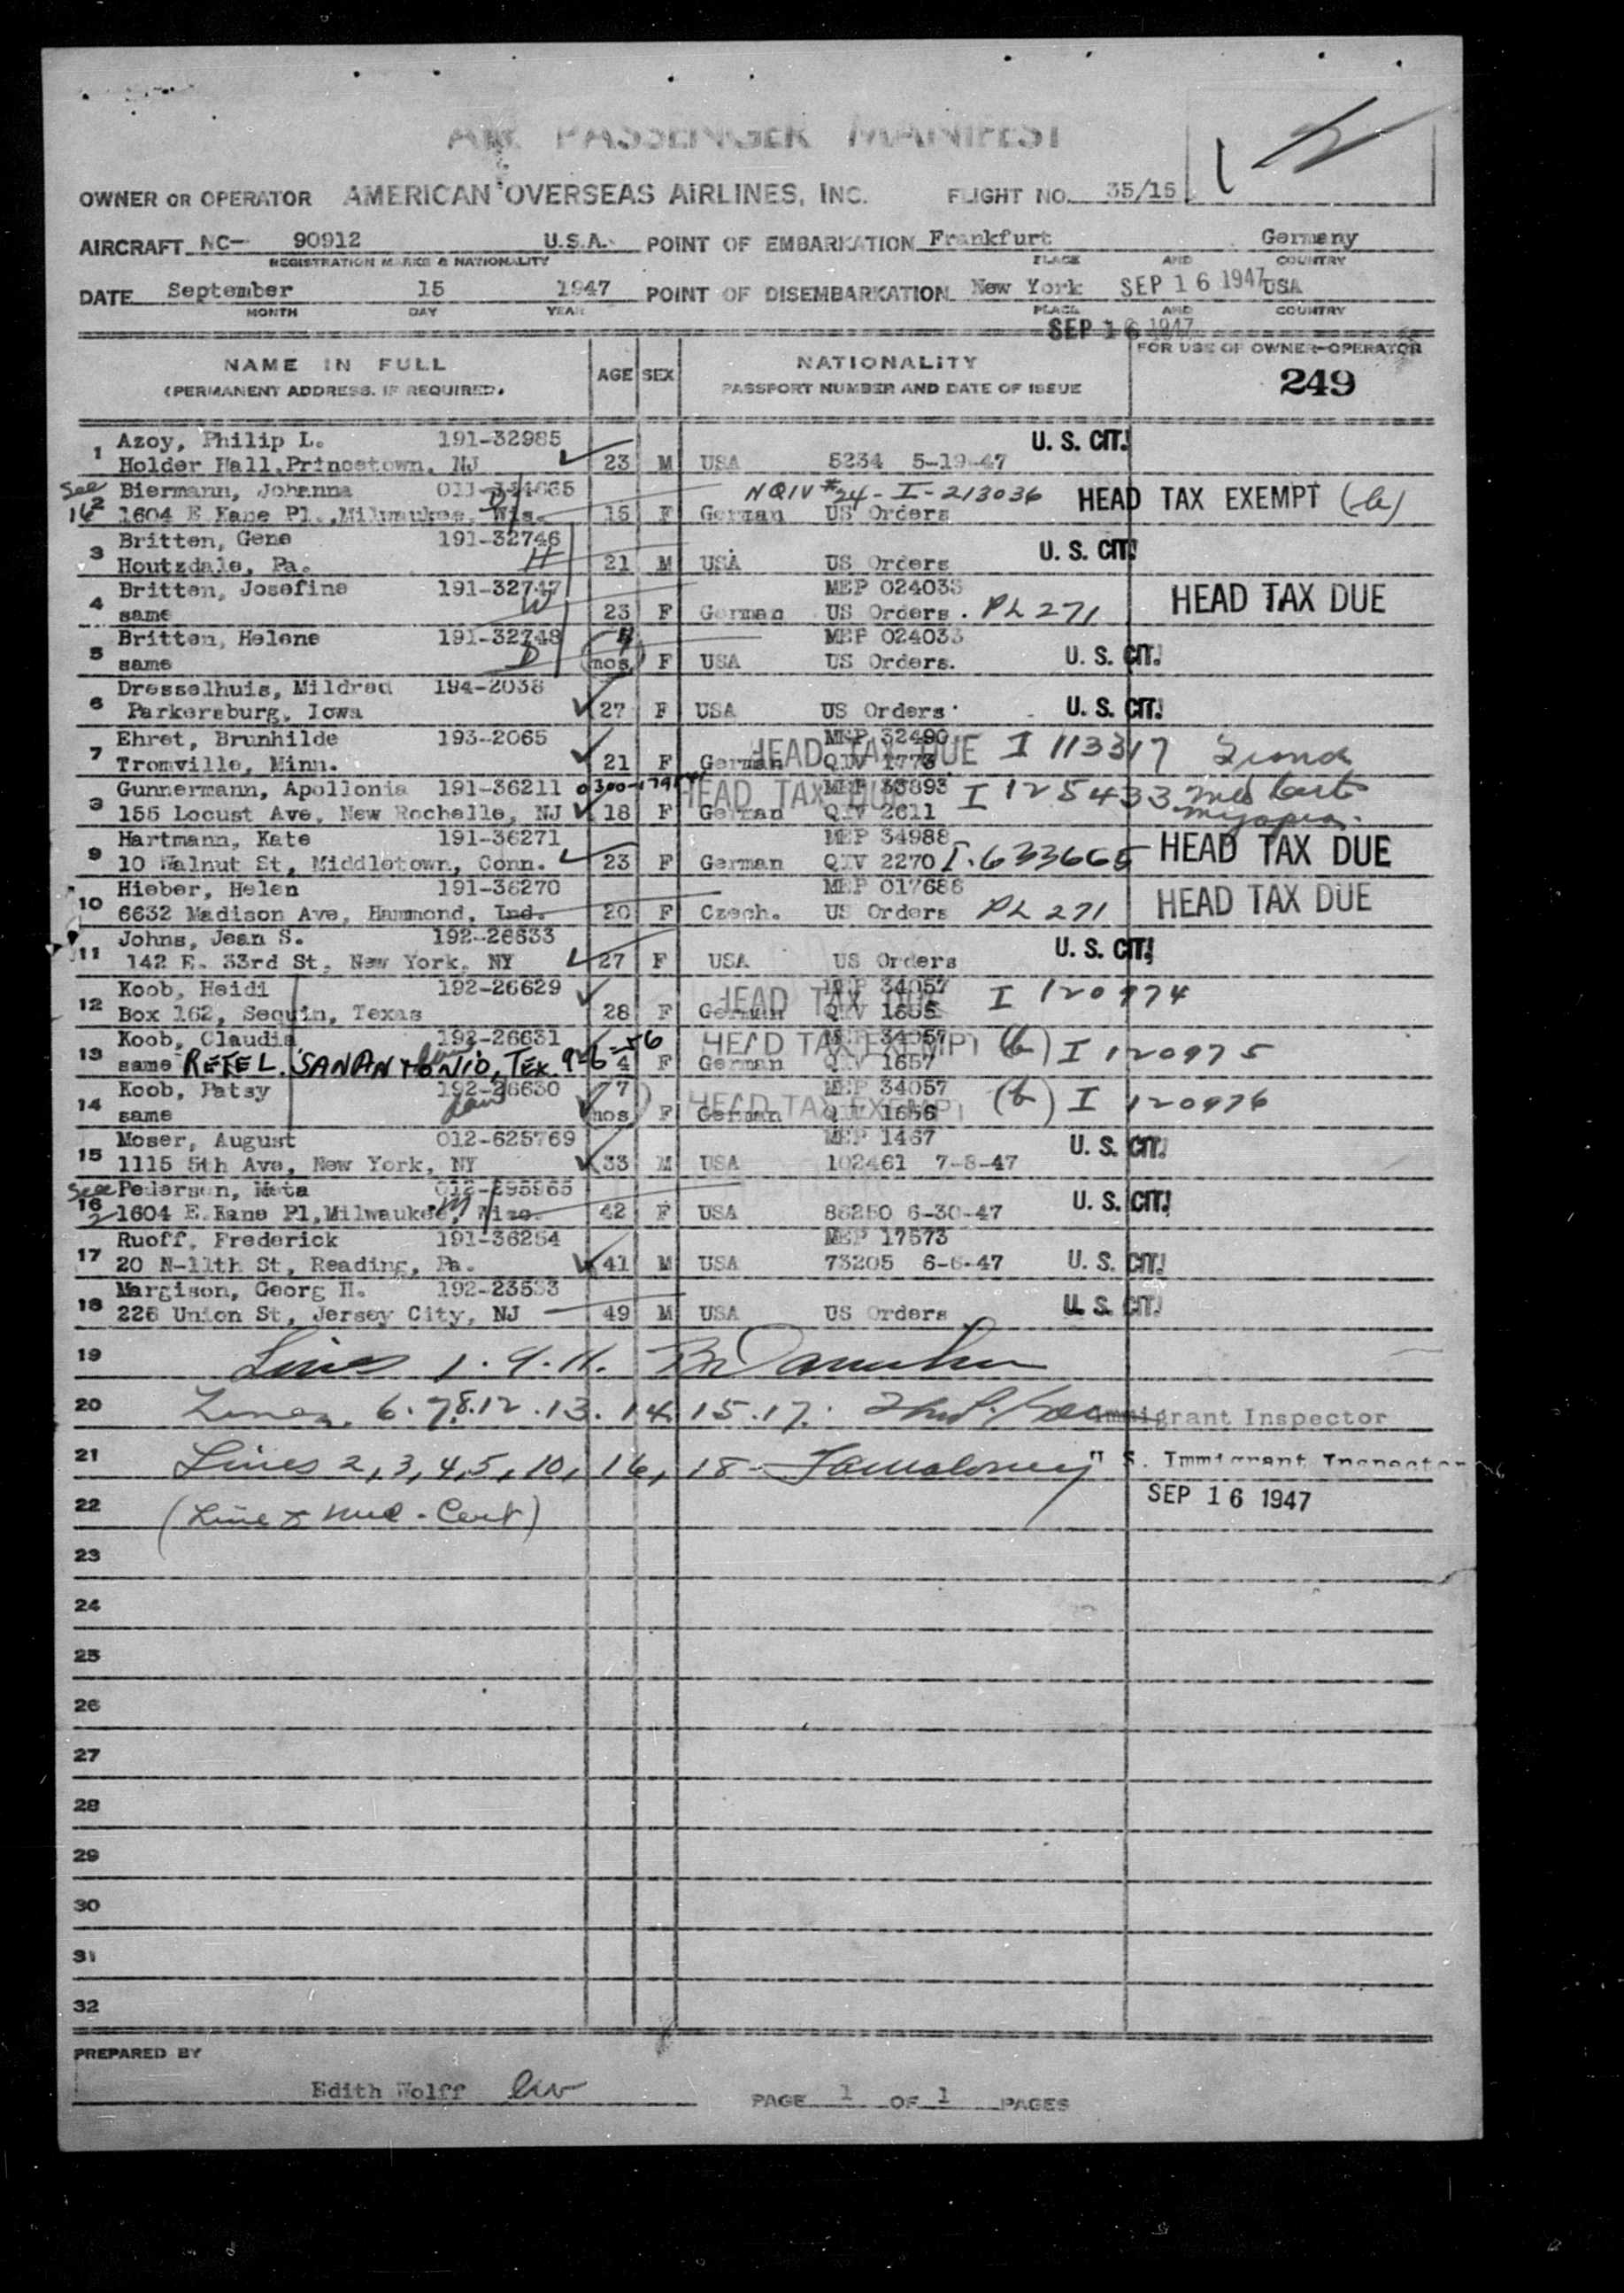 AIR PASSENGER MANIFEST
OWNER OR OPERATOR AMERICAN OVERSEAS AIRLINES, INC. FLIGHT NO. 35/15
AIRCRAFT NC- 90912 U.S.A. POINT OF EMBARKATION Frankfurt Germany
REGISTRATION MARKS & NATIONALITY PLACE AND COUNTRY
DATE September 15 1947 POINT OF DISEMBARKATION New York SEP 16 1947 USA
MONTH DAY YEAR PLACE AND COUNTRY
SEP 16 1947
NAME IN FULL AGE SEX NATIONALITY FOR USE OF OWNER-OPERATOR
(PERMANENT ADDRESS, IF REQUIRED. PASSPORT NUMBER AND DATE OF ISSUE 249
1 Azoy, Philip L. 191-32985 U. S. CIT.
Holder Hall, Princetown, NJ 23 M USA 5234 5-19-47
See Biermann, Johanna NQIV #24-I-213036 HEAD TAX EXEMPT
16 2 1604 E Kane Pl., Milwaukee, Wis. D 15 F German US Orders
3 Britten, Gene 191-32746 U. S. CIT.
Houtzdale, Pa. H 21 M USA US Orders
4 Britten, Josefine 191-32747 MEP 024033 HEAD TAX DUE
same W 23 F German US Orders. PL 271
5 Britten, Helene 191-32748 MEP 024033
same D mos F USA US Orders. U. S. CIT.
6 Dresselhuis, Mildred 194-2038
Parkersburg, Iowa 27 F USA US Orders U. S. CIT.
7 Ehret, Brunhilde 193-2065 MEP 32490 HEAD TAX DUE I 113317
Tromville, Minn. 21 F German QIV 1773
8 Gunnermann, Apollonia 191-36211 MEP 33893 HEAD TAX DUE I 125433 med cert
155 Locust Ave, New Rochelle, NJ 18 F German QIV 2611 myopia.
9 Hartmann, Kate 191-36271 MEP 34988 HEAD TAX DUE
10 Walnut St, Middletown, Conn. 23 F German QIV 2270 I.633665
10 Hieber, Helen 191-36270 MEP 017686 HEAD TAX DUE
6632 Madison Ave, Hammond, Ind. 20 F Czech. US Orders PL 271
11 Johns, Jean S. 192-26633 U. S. CIT.
142 E. 33rd St, New York, NY 27 F USA US Orders
12 Koob, Heidi 192-26629 MEP 34057 HEAD TAX DUE I 120974
Box 162, Sequin, Texas 28 F German QIV 1655
13 Koob, Claudia 192-26631 MEP 34057 HEAD TAX EXEMPT (b) I 120975
same REF EL. SAN ANTONIO, TEX. 9-6-56 4 F German QIV 1657
14 Koob, Patsy 192-26630 7 MEP 34057 HEAD TAX EXEMPT (b) I 120976
same mos F German QIV 1656
15 Moser, August 012-625769 MEP 1467 U. S. CIT.
1115 5th Ave, New York, NY 33 M USA 102461 7-8-47
See Pedersen, Meta 012-295965 U. S. CIT.
16 2 1604 E. Kane Pl, Milwaukee, Wisc. M 42 F USA 86250 6-30-47
17 Ruoff, Frederick 191-36254 MEP 17573
20 N-11th St, Reading, Pa. 41 M USA 73205 6-6-47 U. S. CIT.
18 Margison, Georg H. 192-23533
226 Union St, Jersey City, NJ 49 M USA US Orders U. S. CIT.
19 Lines 1. 9. 11.
20 Lines 6. 7. 8. 12. 13. 14. 15. 17. Immigrant Inspector
21 Lines 2, 3, 4, 5, 10, 16, 18 - U. S. Immigrant Inspector
22 (Line 8 med - Cert) SEP 16 1947
23
24
25
26
27
28
29
30
31
32
PREPARED BY
Edith Wolff ew PAGE 1 OF 1 PAGES